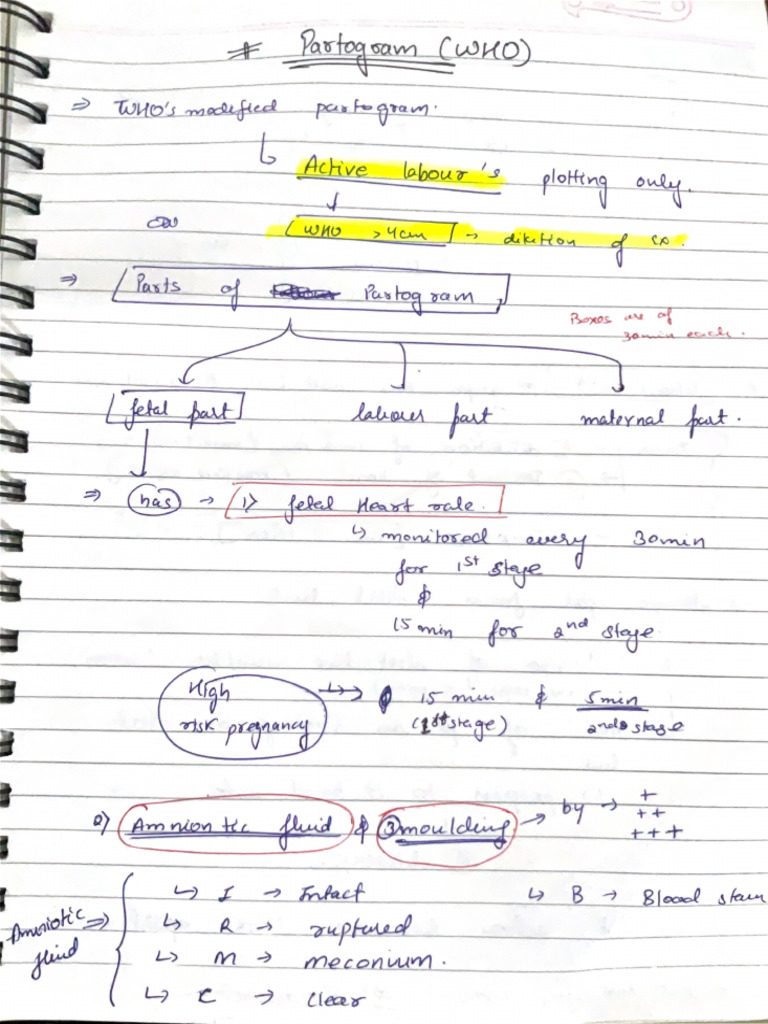 * Partogram (WHO)
⇒ WHO's modified partogram.
↳ Active labour's plotting only.
↓
WHO >4cm → diltion of cx.
⇒ Parts of Partogram
Boxes are of
30min each.
fetal part labour part maternal part.
⇒ has → 1) fetal Heart rate.
↳ monitored every 30min
for 1st stage
&
15 min for 2nd stage
High
risk pregnancy
↳→ 15 min & 5min
(1st stage) 2nd stage
2) Amniontic fluid & 3 moulding → by → +
++
+++
Amniotic fluid ⇒
↳ I → Intact
↳ B → Blood stain
↳ R → ruptured
↳ M → meconium.
↳ C → clear